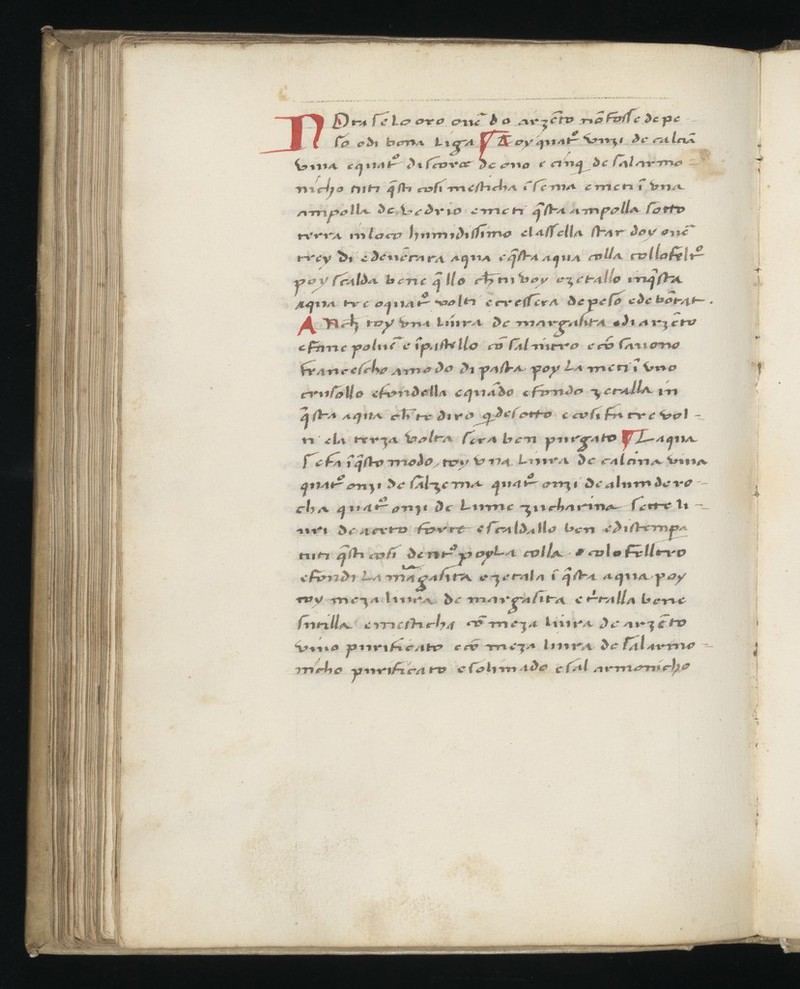 NOta se lo oro ouē do arzēto nō fosse de pe
so odi bona liga ¶ Toy quatᵒ̄ onzi de calcīa
viua e quatᵒ̄ di scorce de ouo e cinq̄ de sal armo-
nicho tuti q̄sti cosi mesticha īsema e meti ī vna
ampolla de vedrio e meti q̄sta ampolla sotto
terra in loco humidissimo e lassella star doy ouē
trey di e deuētara aqua e q̄sta aqua colla col lo feltᵒ̄
poy scalda bene q̄llo ch̄ tu voy e zetallo in q̄sta
aqua tre o quatᵒ̄ volti e cressera de peso e de bōtat.
ANch̄ toy vna liura de margasita o di arzēto
e fane poluē e īpastello cō sal nitro e cō sauono
francescho a modo di pasta poy la meti ī vno
crusollo e fondella e quādo e fondo zetalla in
q̄sta aqua ch̄ te diro q̄ de sotto e cosi fa tre vol-
ti e la terza volta sera ben purgato ¶ Laqua
se fa ī q̄sto modo, toy vna liura de calcina viua
quatᵒ̄ onzi de salzema quatᵒ̄ onzi de alum de ro-
cha quatᵒ̄ onzi de lume zucharina sette li-
uri de aceto forte e scaldallo ben e distempa
tuti q̄sti cosi dentᵒ̄ poy la colla colo felltro
e fondi la margasita e zetala ī q̄sta aqua poy
toy meza liura de margasita e t'talla bene
sutilla e mesticha cō meza liura de arzēto
viuo purificato e cō meza liura de sal armo-
nicho purificato e solimado e sal armonicho